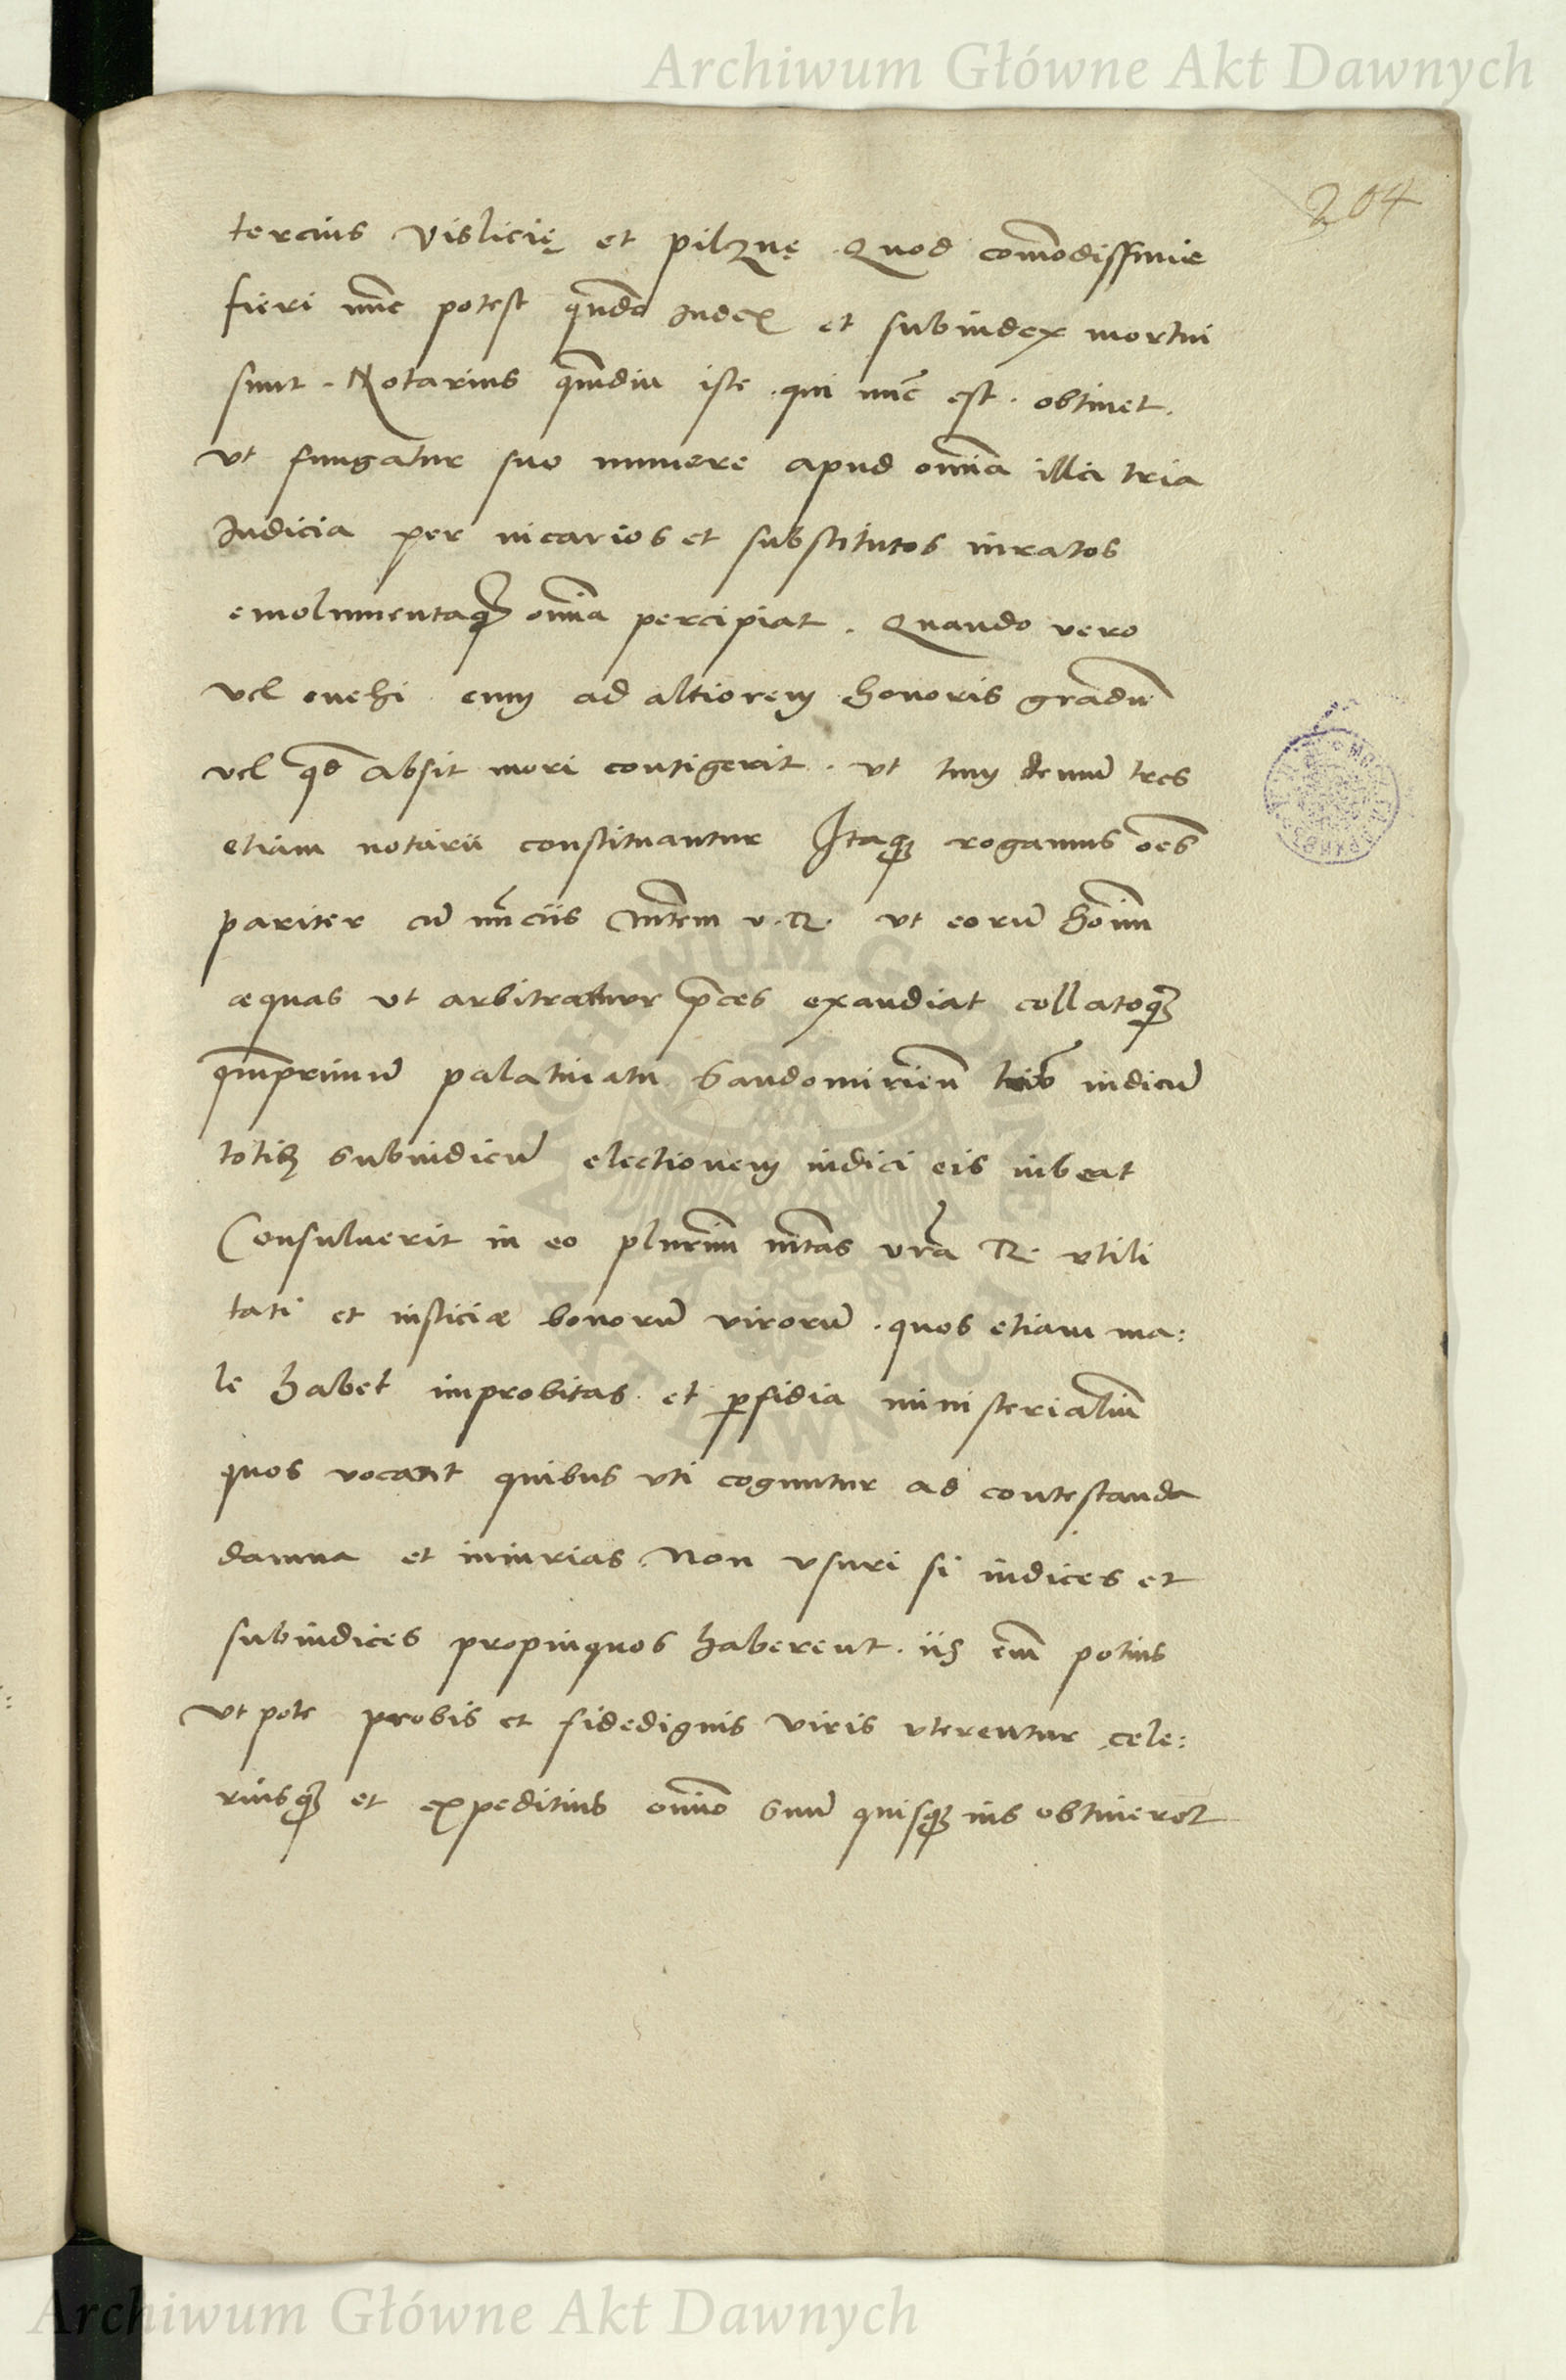 Archiwum Główne Akt Dawnych
204
tercius Vislicię et pilznę. Quod com̄odissime
fieri nūc potest qn̄do Iudex et subiudex mortui
sunt. Notarius qm̄diu iste. qui nūc est. obtinet.
vt fungatur suo munere apud om̄ia illa tria
Iudicia per uicarios et substitutos iuratos
emolumentaqꝫ om̄ia percipiat. Quando vero
vel euehi eum ad altiorem honoris gradū
vel qd̄ absit mori contigerit. vt tum demū tres
etiam notarii constituantur Itaqꝫ rogamus oēs
pariter cū nn̄ciis Mtēm v. R. vt eorū hoīm
æquas vt arbitramur p̄ces exaudiat collatoqꝫ
qm̄primū palatinatu Sandomirien̄ iudicū
totiꝫ Subiudicū electionem indici eis iubeat
Consuluerit in eo plurim̄ mt̄as vr̄a R. vtili
tati et iusticiæ bonorū virorū. quos etiam ma:
le habet improbitas et ꝑfidia ministerialiū
quos vocant quibus vti coguntur ad contestanda
damna et iniurias. Non vsuri si iudices et
subiudices propinquos haberent. iis em̄ potius
vt pote probis et fidedignis viris vterentur cele:
riusqꝫ et expeditius om̄no suū quisqꝫ ius obtineret
Archiwum Główne Akt Dawnych